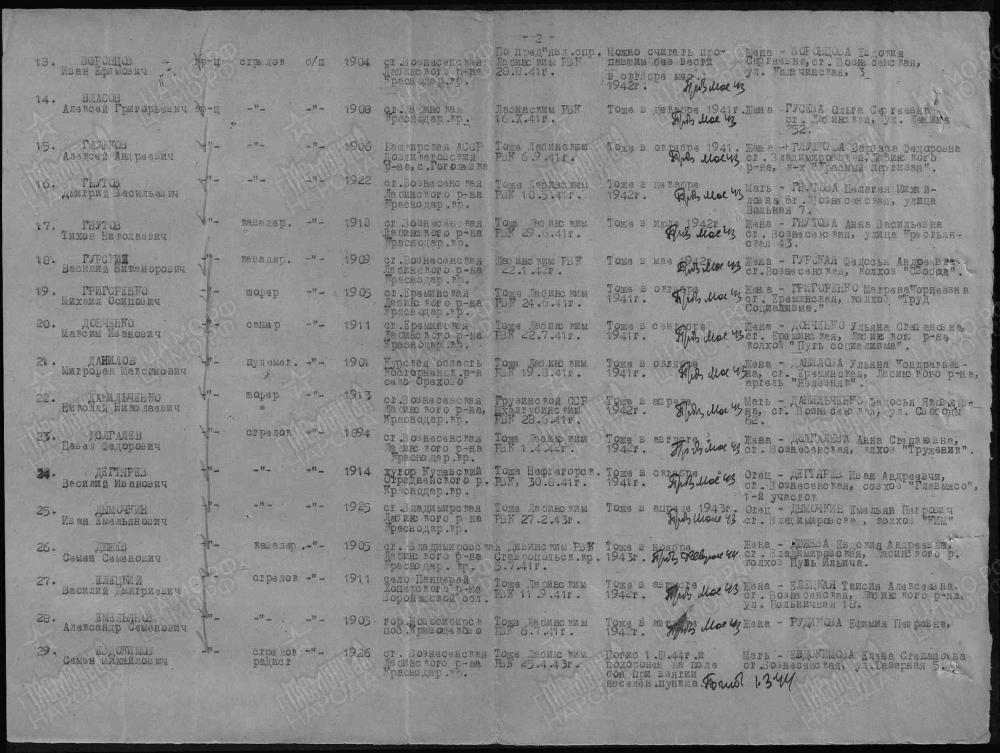 - 2 -
По пред"явл.спр. Можно считать про- Жена - ВОРОНЦОВА Евдокия
13. ВОРОНЦОВ кр-ц стрелок б/п 1904 ст.Вознесенская Лабинским РВК павшим без вести Сергеевна, ст. Вознесенская,
Иван Ефимович Лабинского р-на 28.8.41г. в октябре мес. ул. Калачинская, 3
Краснодар.кр. 1942г. Проп мае 43
14. ВЛАСОВ
Алексей Григорьевич кр-ц -"- -"- 1908 ст. Краснодар.кр. Лабинским РВК 16.X.41г. Тоже в декабре 1941г. Проп мае 43 Жена - ГУСЕВА Ольга Сергеевна ст. Лабинская, ул. Ленина 52.
15. ГЛУШКОВ -"- -"- 1906 Башкирская АССР Тоже Лабинским Тоже в октябре 1941. Жена - ГЛУШКОВА Варвара Федоровна
Алексей Андреевич р-на, с. РВК 6.9.41г. Проп мае 43 ст. Владимировская, Лабинского
р-на, к-х "Красный партизан".
16. ГНУТОВ -"- -"- 1922 ст.Вознесенская Тоже Лабинским Тоже в декабре Мать - ГНУТОВА Пелагея Михай-
Дмитрий Васильевич Лабинского р-на РВК 1942г. Проп мае 43 ловна ст. Вознесенская, улица
Краснодар.кр. Вольная 7.
17. ГНУТОВ кавалер. -"- 1913 ст.Вознесенская Тоже Лабинским Тоже в 1942г. Жена - ГНУТОВА Анна Васильевна
Тихон Николаевич Лабинского р-на РВК 29.6.41г. Проп мае 43 ст. Вознесенская, улица Крестьян-
Краснодар.кр. ская 43.
18. ГУРСКИЙ кавалер. -"- 1909 ст.Вознесенская Лабинским РВК Тоже в мае 1942г. Жена - ГУРСКАЯ Федосья Андреевна
Василий Никанорович Лабинского р-на 22.1.42г. Проп мае 43 ст.Вознесенская, колхоз "Свобода".
Краснодар.кр.
19. ГРИГОРЕНКО шофер -"- 1905 ст.Ереминская Тоже Лабинским Тоже в октябре Жена - ГРИГОРЕНКО Матрена Корнеевна
Михаил Осипович Лабинского р-на РВК 24.6.41г. 1941г. Проп мае 43 ст. Ереминская, колхоз "Труд
Краснодар.кр. Социализма."
20. ДОНЧЕНКО сапер -"- 1911 ст.Ереминская Тоже Лабинским Тоже в сентябре Жена - ДОНЧЕНКО Ульяна Степановна,
Максим Иванович Лабинского р-на РВК 22.7.41г. 1941г. Проп мае 43 ст. Ереминская, Лабинского р-на,
Краснодар.кр. колхоз "Путь социализма".
21. ДАНИЛОВ пулемет. -"- 1901 Курская область Тоже Лабинским Тоже в октябре Жена - ДАНИЛОВА Ульяна Кондратьев-
Митрофан Максимович р-н РВК 1941г. Проп мае 43 на, ст. Ереминская, Лабинского р-на,
село Орехово артель
22. ДАНИЛЬЧЕНКО шофер -"- 1913 ст.Вознесенская Грузинской ССР Тоже в апреле Мать - ДАНИЛЬЧЕНКО Федосья
Николай Николаевич Лабинского р-на, 1942г. Проп мае 43 на, ст. Вознесенская, ул. Свободы
Краснодар.кр. РВК 28.6.41г. 62.
23. ДОЛГАЛЕВ стрелок -"- 1894 ст.Вознесенская Тоже Лабинским Тоже в августе Жена - ДОЛГАЛЕВА Анна Степановна,
Павел Федорович Лабинского р-на РВК Проп мае 43 ст. Вознесенская, колхоз "Труженик".
Краснодар.кр.
24. ДЕГТЯРЕВ -"- -"- 1914 хутор Кушевский Тоже Нефтегорск. Тоже в октябре Отец - ДЕГТЯРЕВ Иван Андреевич,
Василий Иванович Отрадненского р. РВК, 30.8.41г. 1941г. Проп мае 43 ст. Вознесенская, совхоз "Главмясо",
Краснодар.кр. 1-й участок
25. ДЫМОЧКИН -"- -"- 1925 ст.Владимирская Тоже Лабинским Тоже в апреле 1943г. Отец - ДЫМОЧКИН Емельян Петрович
Иван Емельянович Лабинского р-на РВК 27.2.43г. Проп мае 43 ст. Владимировская, колхоз "КИМ"
Краснодар.кр.
26. кавалер. -"- 1905 ст.Владимировская Лабинским РВК Тоже в ноябре Жена - Евдокия Андреевна,
Семен Семенович Лабинского р-на Ставропольск.кр. 1943г. ст. Владимировская, Лабинского р.
Краснодар.кр. 5.7.41г. колхоз Путь Ильича.
27. ЕЛЕЦКИЙ стрелок -"- 1911 село Тоже Лабинским Тоже в августе Жена - ЕЛЕЦКАЯ Таисия Алексеевна,
Василий Дмитриевич р-на РВК 11.9.41г. 1942г. Проп мае 43 ст. Вознесенская, Лабинского р-на,
Воронежской обл. ул. Больничная 18.
28. ЕМЕЛЬЯНОВ -"- -"- 1905 гор.Новосибирск Тоже Лабинским Тоже в августе Жена - РУДИКОВА Ефимия Петровна,
Александр Семенович пос. РВК 6.7.41г. 1942г. Проп мае 43
29. ЕВДОКИМОВ стрелок -"- 1926 ст. Вознесенская Тоже Лабинским Погиб 1.III.44г.и Мать - ЕВДОКИМОВА Елена Степановна
Семен Михайлович радист Лабинского р-на РВК похоронен на поле ст.Вознесенская, ул.Базарная 5.
Краснодар.кр. боя при взятии
населен.пункта. Погиб 1.3.44